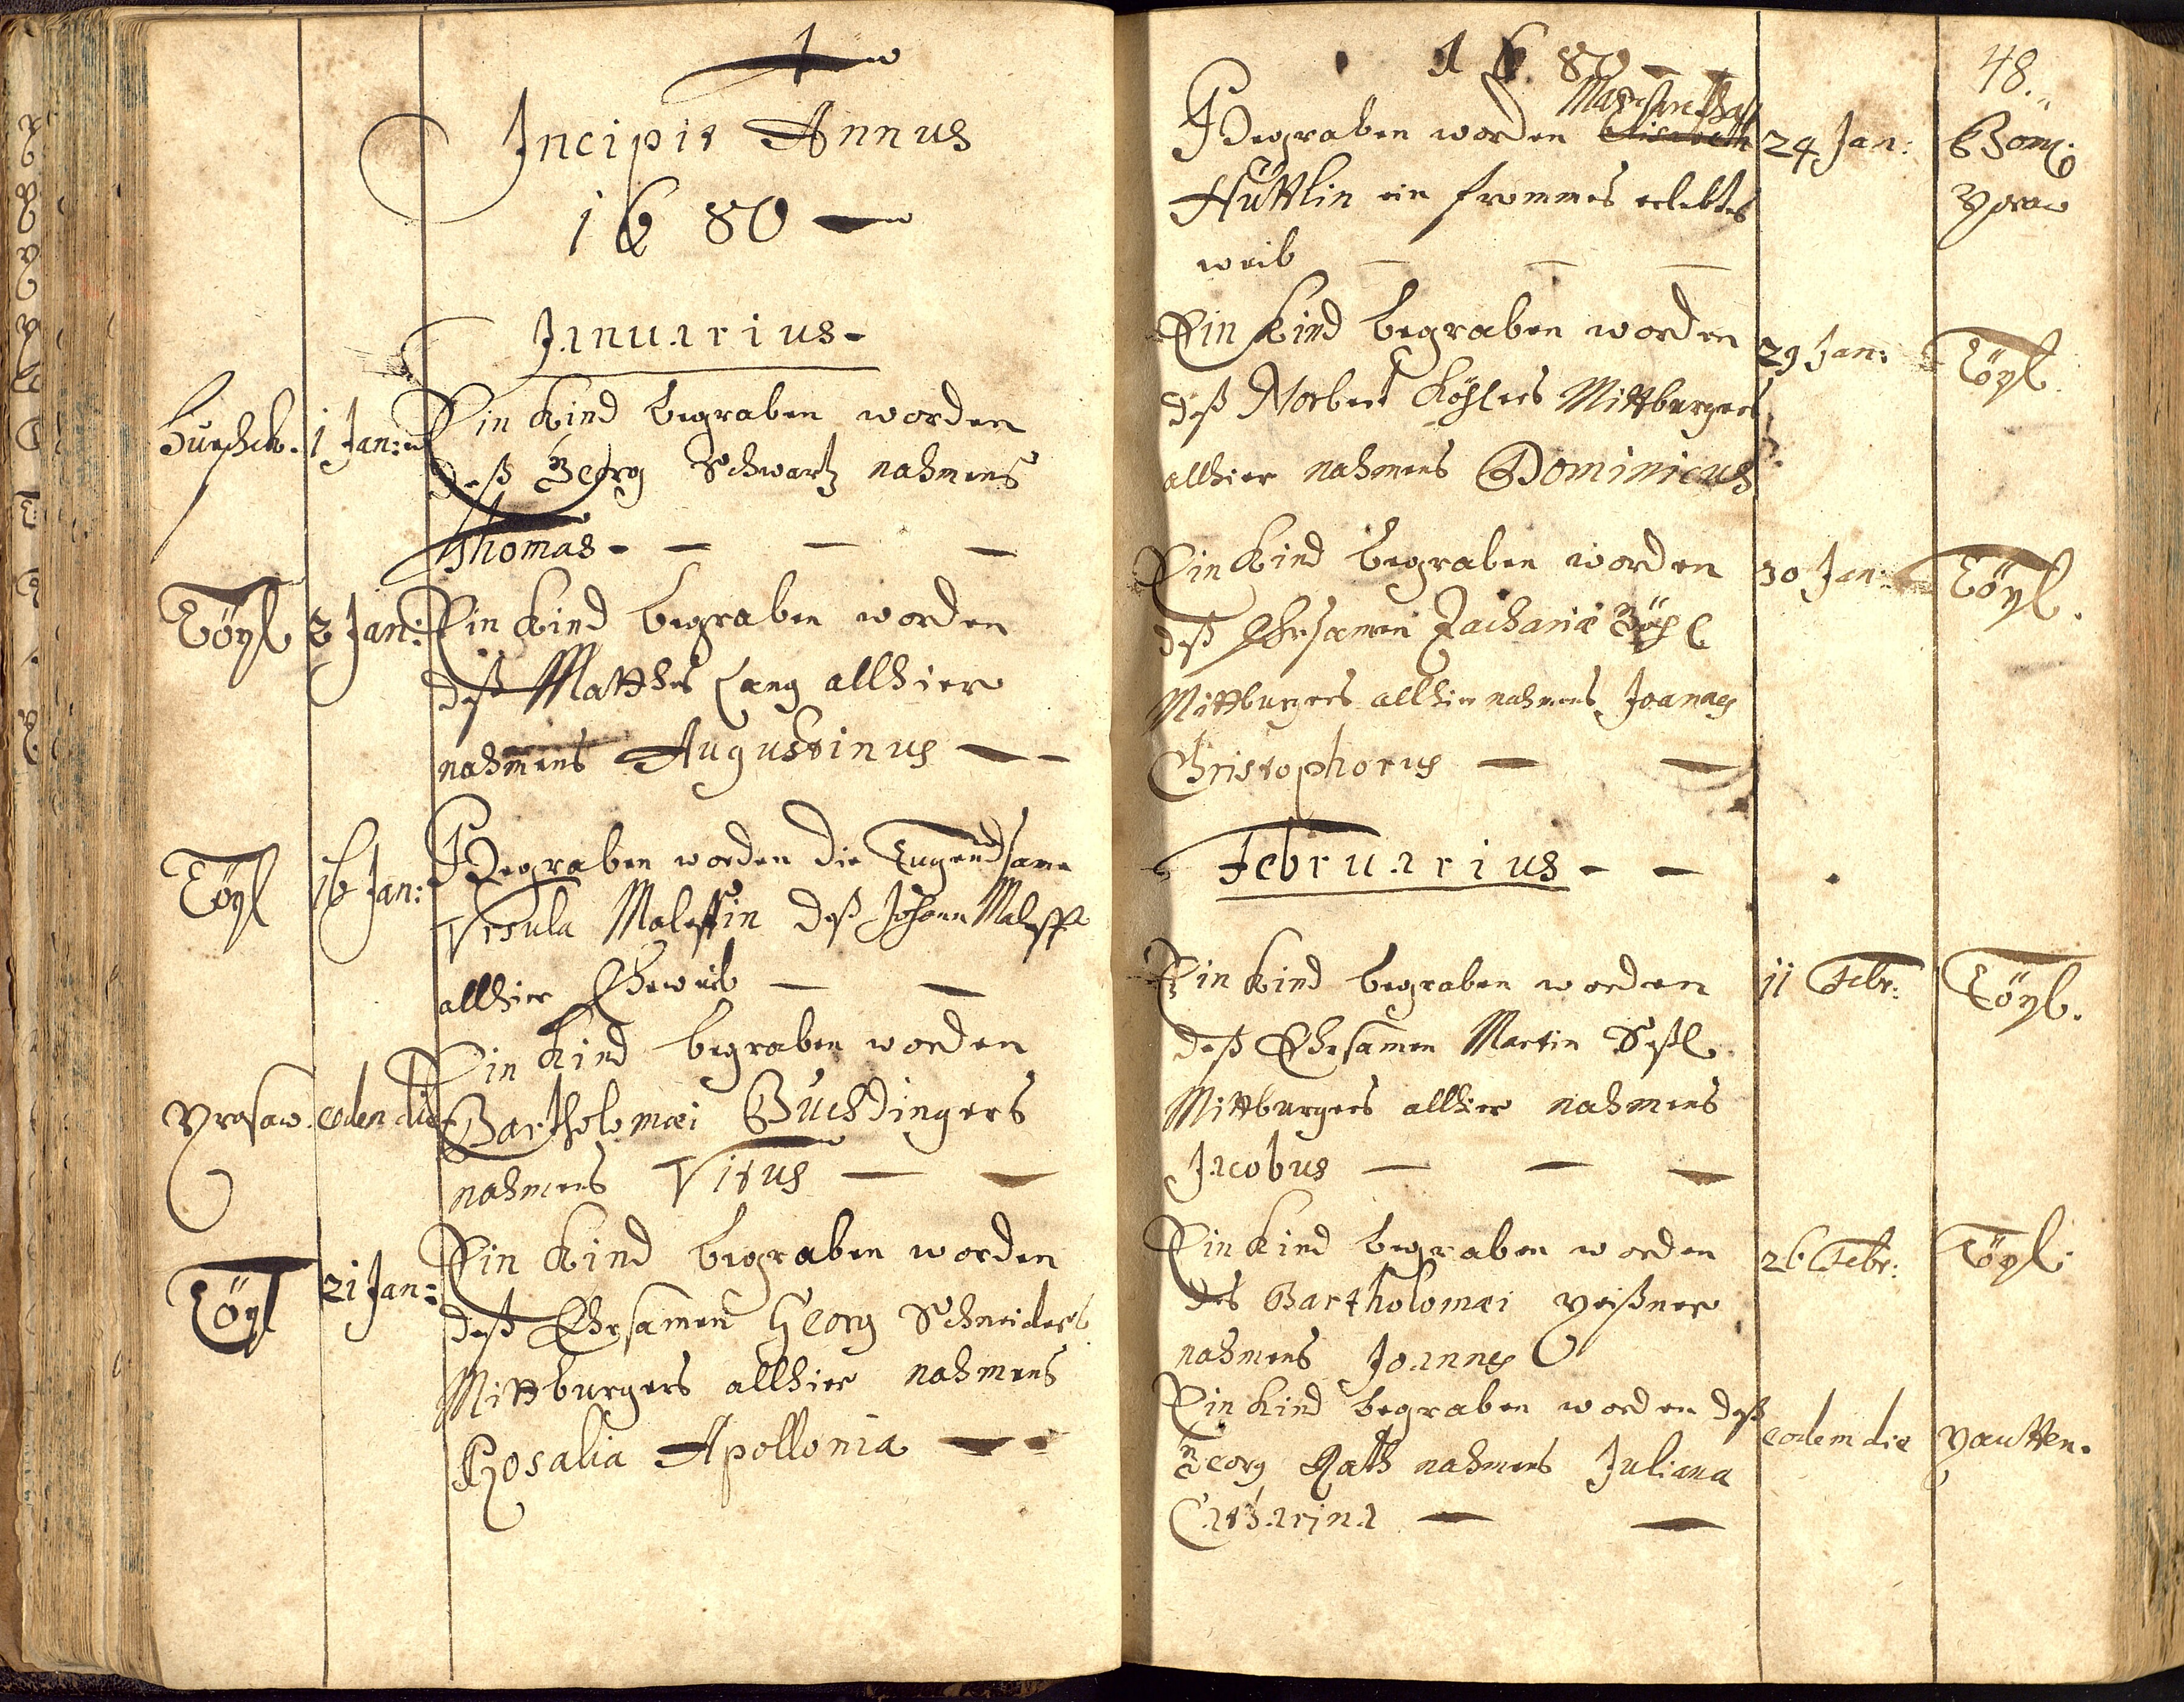 Incipit Annus
1680
Januarius
1 Jan: Ein Kind begraben worden
deß Georg Schwartz nahmens
Thomas
Töpl 2 Jan: Ein Kind begraben worden
deß Matthes Lang allhier
nahmens Augustinus
Töpl 16 Jan: Begraben worden die Tugendsame
Ursula deß Johann
allhier Eheweib
Prosaw. eodem die Ein Kind begraben worden
Bartholomæi Buchdingers
nahmens Vitus
Töpl 21 Jan: Ein Kind begraben worden
deß Ehrsamen Georg Schneiders
Mittburgers allhier nahmens
Rosalia Apollonia
1680
48.
Margaretha
Begraben worden 24 Jan:
Hüttlin ein frommes erlebtes
weib
Ein Kind begraben worden 29 Jan: Töpl
deß Norbert Köhlers Mittburgers
allhier nahmens Dominicus
Ein Kind begraben worden 30 Jan: Töpl.
deß Ehrsamen Zachariæ
Mittburgers allhier nahmens Joannes
Christophorus
Februarius
Ein Kind begraben worden 11 Febr: Töpl.
deß Ehrsamen Martin
Mittburgers allhier nahmens
Jacobus
Ein Kind begraben worden 26 Febr: Töpl.
des Bartholomæi Peißner
nahmens Joannes
Ein Kind begraben worden deß eodem die Pautten.
Georg Rath nahmens Juliana
Catharina